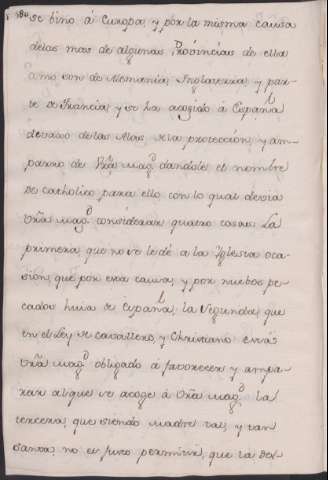 se bino á Europa, y por la misma causa
delas mas de algunas Provincias de ella
como son de Alemania, Inglaterra, y par-
te de Francia, y se ha acogido á España
devaxo de las Alas, de la proteccion, y am-
parro de Vrã Magd. dandole el nombre
de catholico para ello con lo qual devia
Vrã Magd. considerar quatro cosas. La
primera, que no se le dé a la Yglesia oca-
sion, que por esta causa, y por nuestros pe-
cados huia de España, la Segunda, que
en el Ley de cavallero, y Christiano está
Vrã Magd. obligado á favorecer y ampa-
rar alque se acoge á Vrã Magd. la
tercera, que siendo madre tal, y tan
santa, no es justo permitir, que la des-